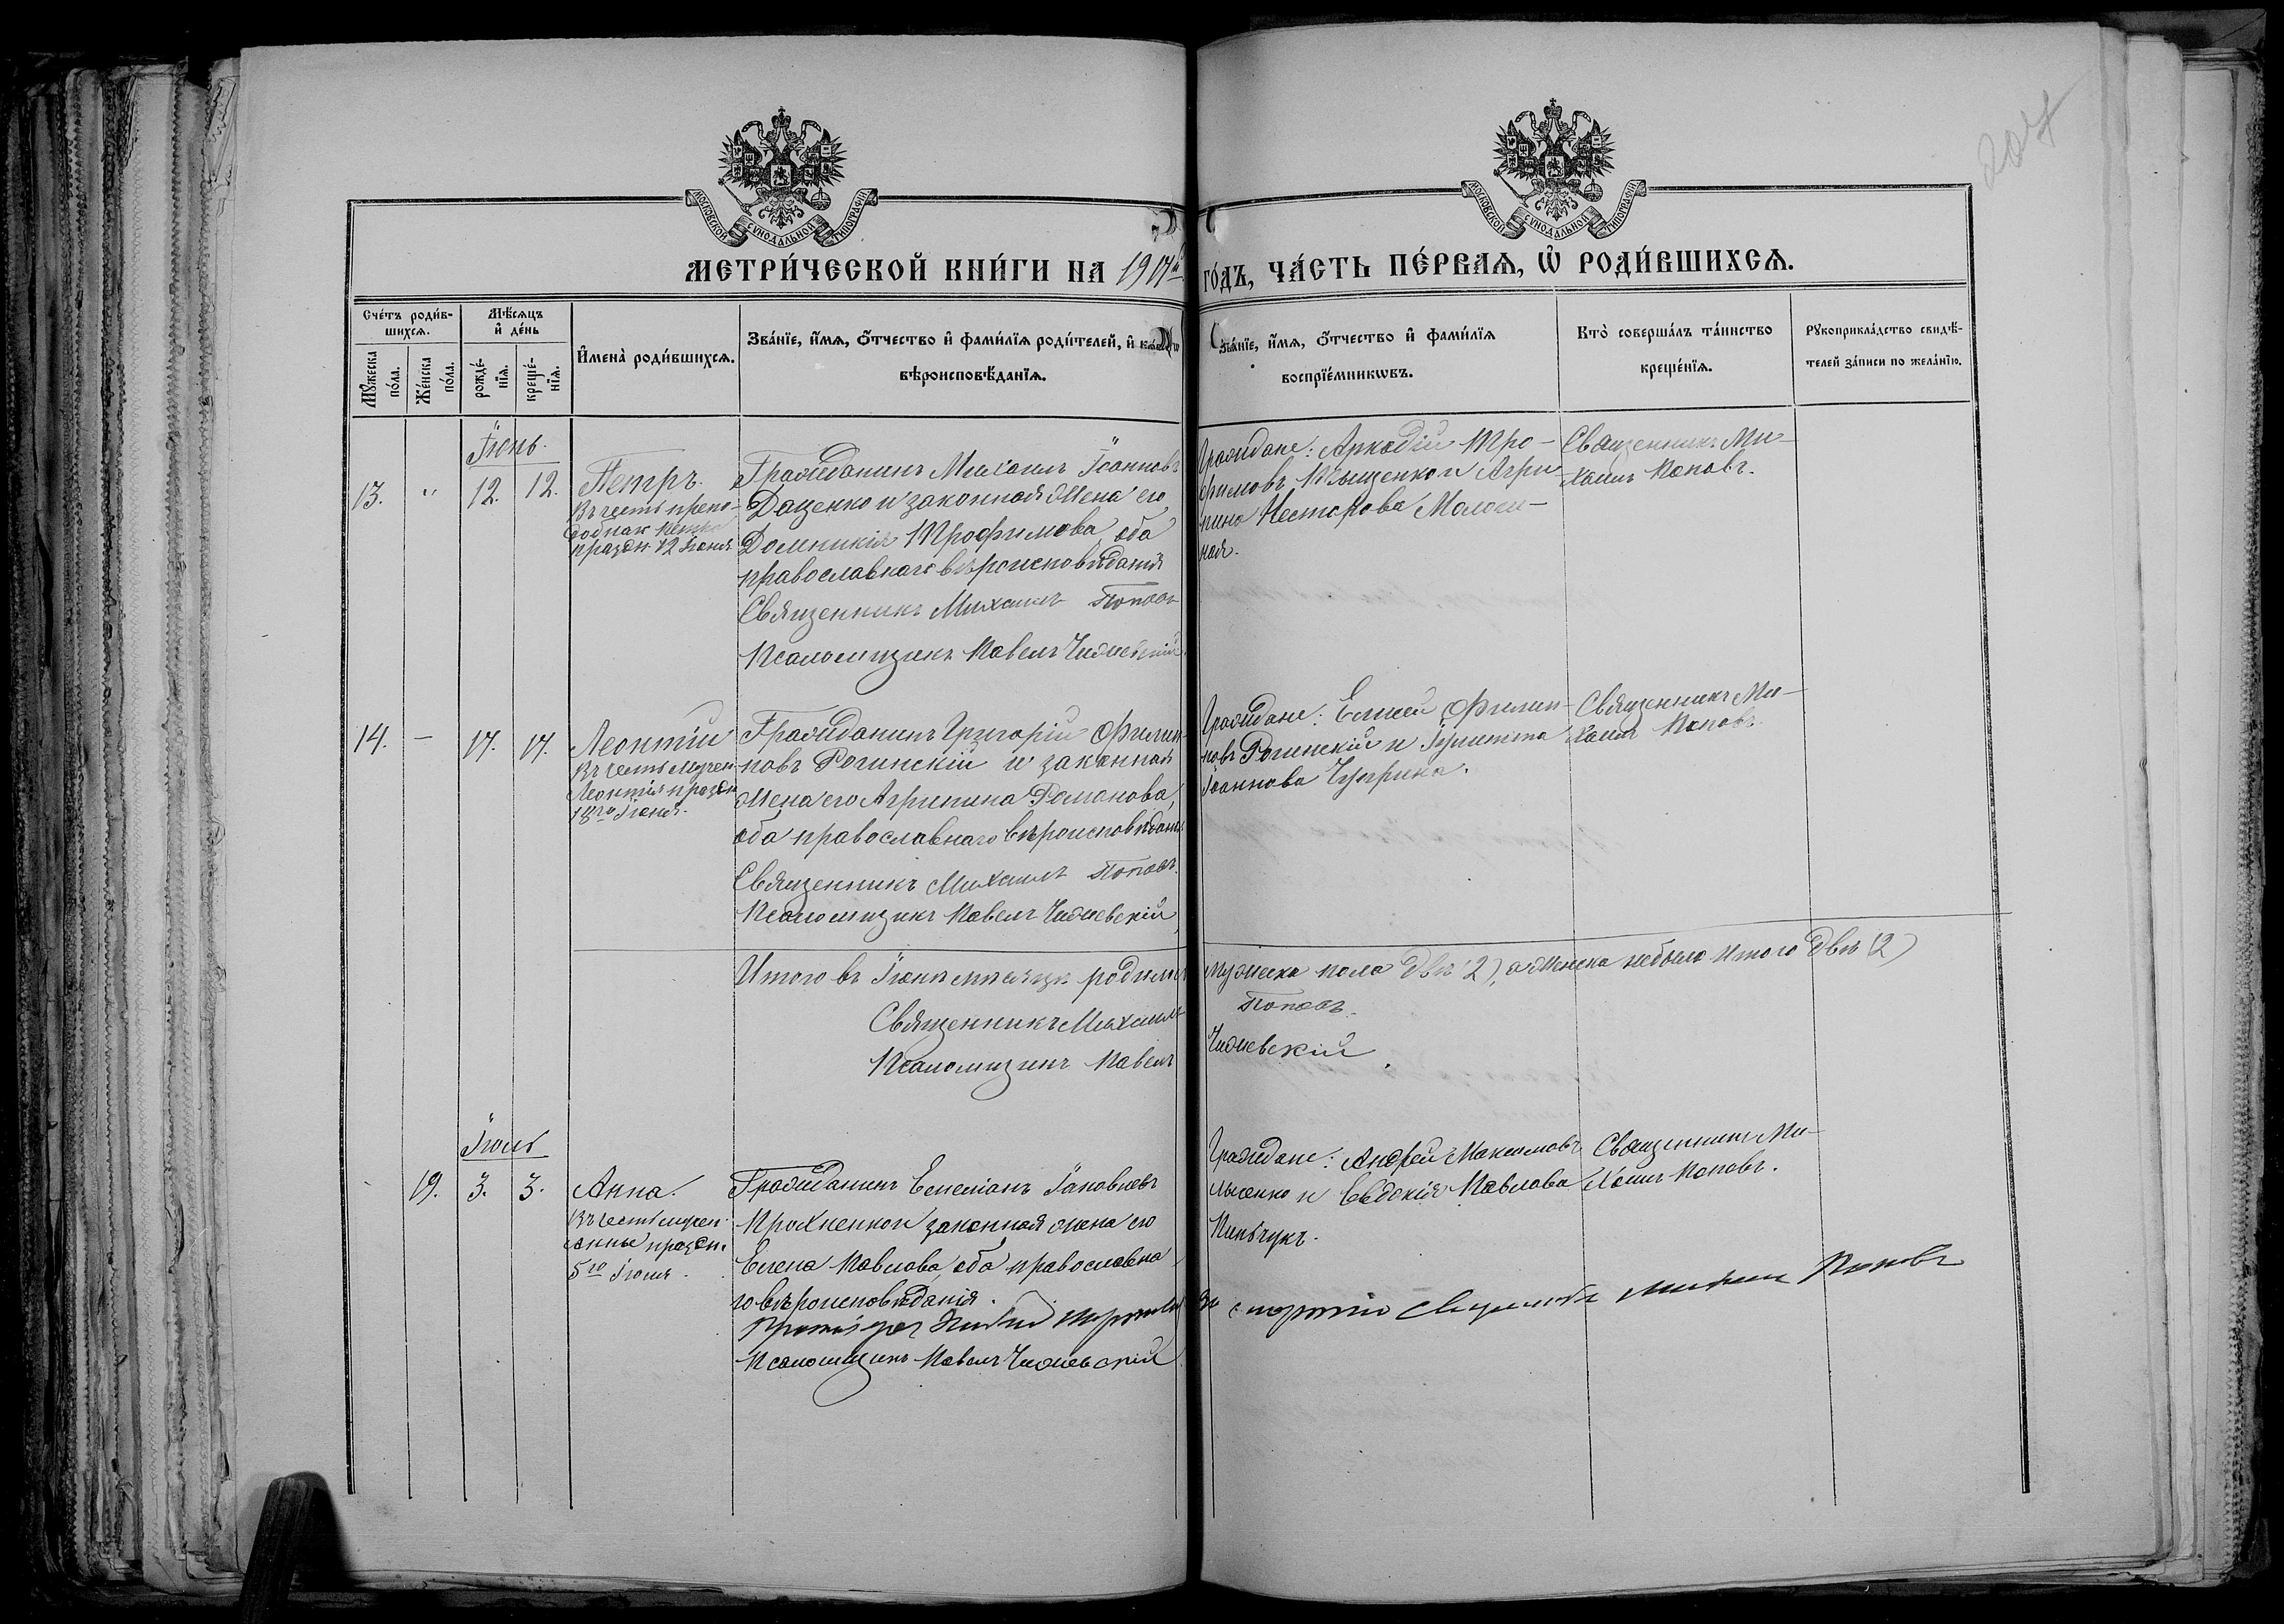 МОСКОВСКОЙ СУНОДАЛЬНОЙ ТИПОГРАФІИ
МОСКОВСКОЙ СУНОДАЛЬНОЙ ТИПОГРАФІИ
МЕТРИ́ЧЕСКОЙ КНИ́ГИ НА 1917й ГО́ДЪ, ЧА́СТЬ ПЕ́РВАѦ, Ѡ РОДИ́ВШИХСѦ.
Сче́тъ роди́в-
шихсѧ.
Мꙋжеска
по́ла.
Же́нска
по́ла.
Мѣ́сѧцъ
и҆ де́нь
рожде́-
нїѧ.
креще́-
нїѧ.
И҆мена̀ роди́вшихсѧ.
Зва́нїе, и҆́мѧ, ѻ҆́тчество и҆ фами́лїѧ роди́телей, и҆
вѣроисповѣ́данїѧ.
Зва́нїе, и҆́мѧ, ѻ҆́тчество и҆ фами́лїѧ
воспрїе́мникѡвъ.
Кто̀ соверша́лъ та́инство
креще́нїѧ.
Рꙋкоприкла́дство свидѣ́-
телей за́писи по жела́нїю.
Іюнь.
13. " 12. 12.
Петръ.
Въ честь препо-
добнаг Петра
праздн. 12 Іюня
Гражданинъ Михаилъ Іоанновъ
Даценко и законная жена его
Домникія Трофимова, оба
православнаго вѣроисповѣданія
Священникъ Михаилъ Поповъ
Псаломщикъ Павелъ Чижевскій
Граждане: Аркадій Тро-
фимовъ и Агри-
пина Несторова
ная.
Священникъ Ми-
хаилъ Поповъ.
14. — 17. 17.
Леонтій
Въ честь мучен.
Леонтія праздн
18го Іюня.
Гражданинъ Григорій Филип-
повъ Рогинскій и законная
жена его Агрипина Романова,
оба православнаго вѣроисповѣдані
Священникъ Михаилъ Поповъ.
Псаломщикъ Павелъ Чижевскій
Граждане: Елисей Филип-
повъ Рогинскій и Іулитта
Іоаннова Чуприна.
Священникъ Ми-
хаилъ Поповъ.
Итого въ Іюнѣ мѣсяцѣ родилось мужеска пола двѣ (2), а женска небыло итого двѣ (2)
Священникъ Михаилъ Поповъ.
Псаломщикъ Павелъ Чижевскій
Іюль
19. 3. 3.
Анна.
Въ честь мучен.
Анны праздн.
5го Іюля.
Гражданинъ Емеліанъ Іаковлевъ
Прохненко и законная жена его
Елена Павлова, оба православна
го вѣроисповѣданія.
Псаломщикъ Павелъ Чижевскій
Граждане: Андрей Максимовъ
и Евдокія Павлова
Кинбчукъ.
Священникъ Ми-
хаилъ Поповъ.
Михаилъ Поповъ